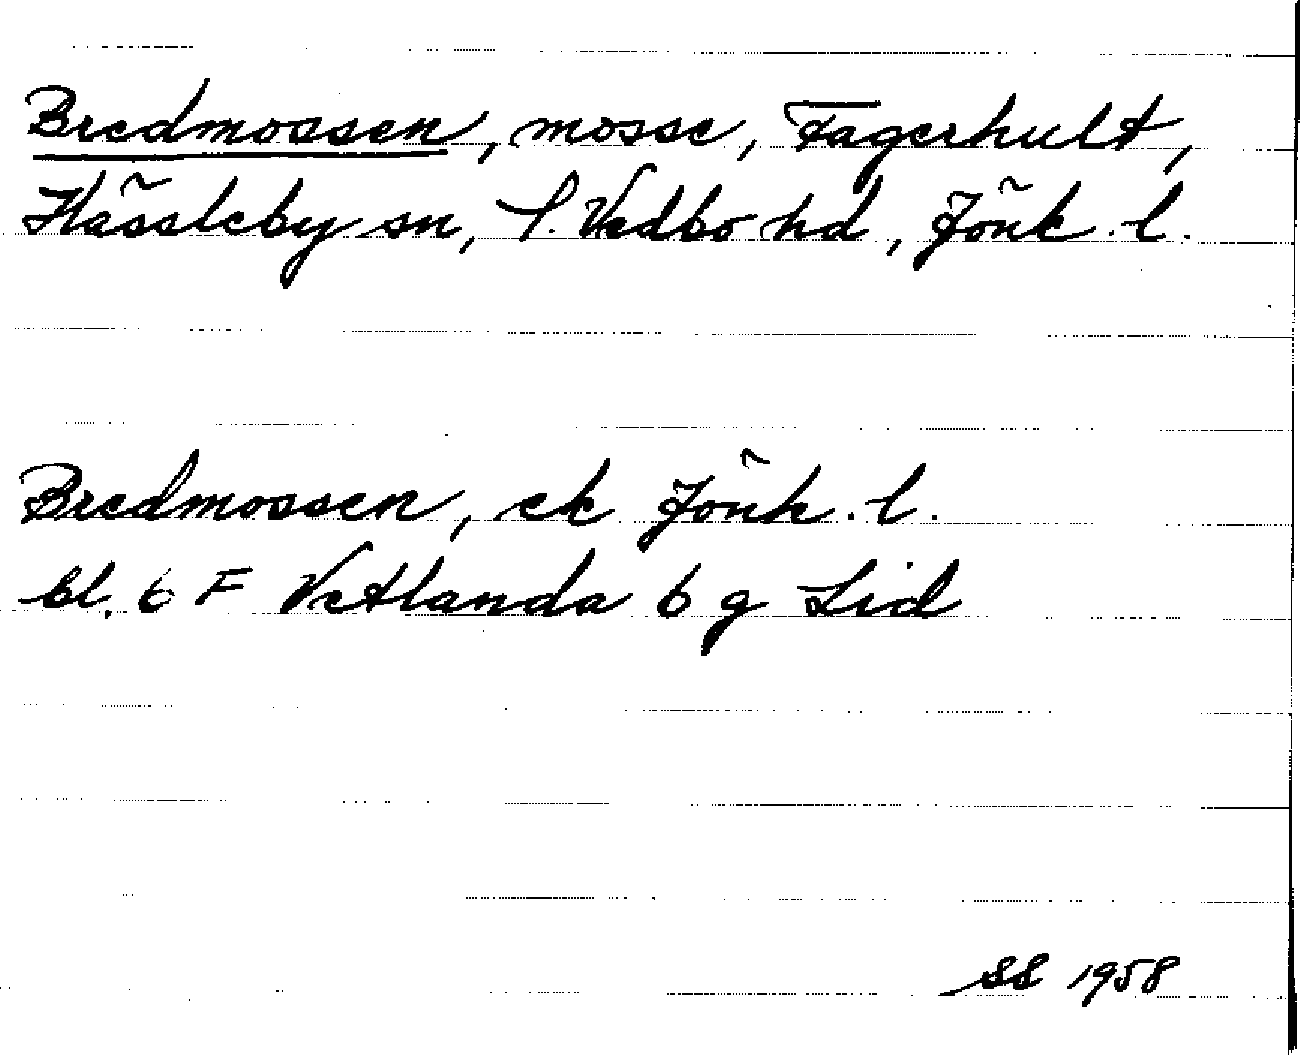 Bredmossen, mosse, Fagerhult,
Hässleby sn, S. Vedbo hd, Jönk. l.
Bredmossen, ek Jönk. l.
bl. 6 F Vetlanda 6 g Lid
SS 1958